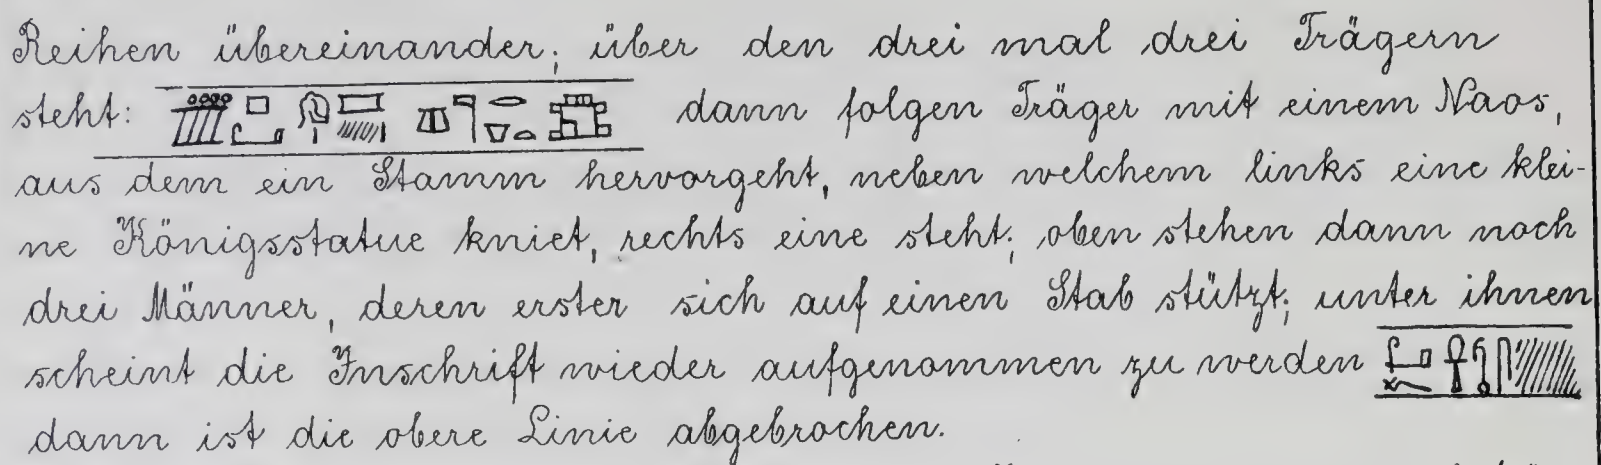 Reihen übereinander; über den drei mal drei Trägern
steht: dann folgen Träger mit einem Naos,
aus dem ein Stamm hervorgeht, neben welchem links eine klei-
ne Königsstatue kniet, rechts eine steht; oben stehen dann noch
drei Männer, deren erster sich auf einen Stab stützt; unter ihnen
scheint die Inschrift wieder aufgenommen zu werden
dann ist die obere Linie abgebrochen.